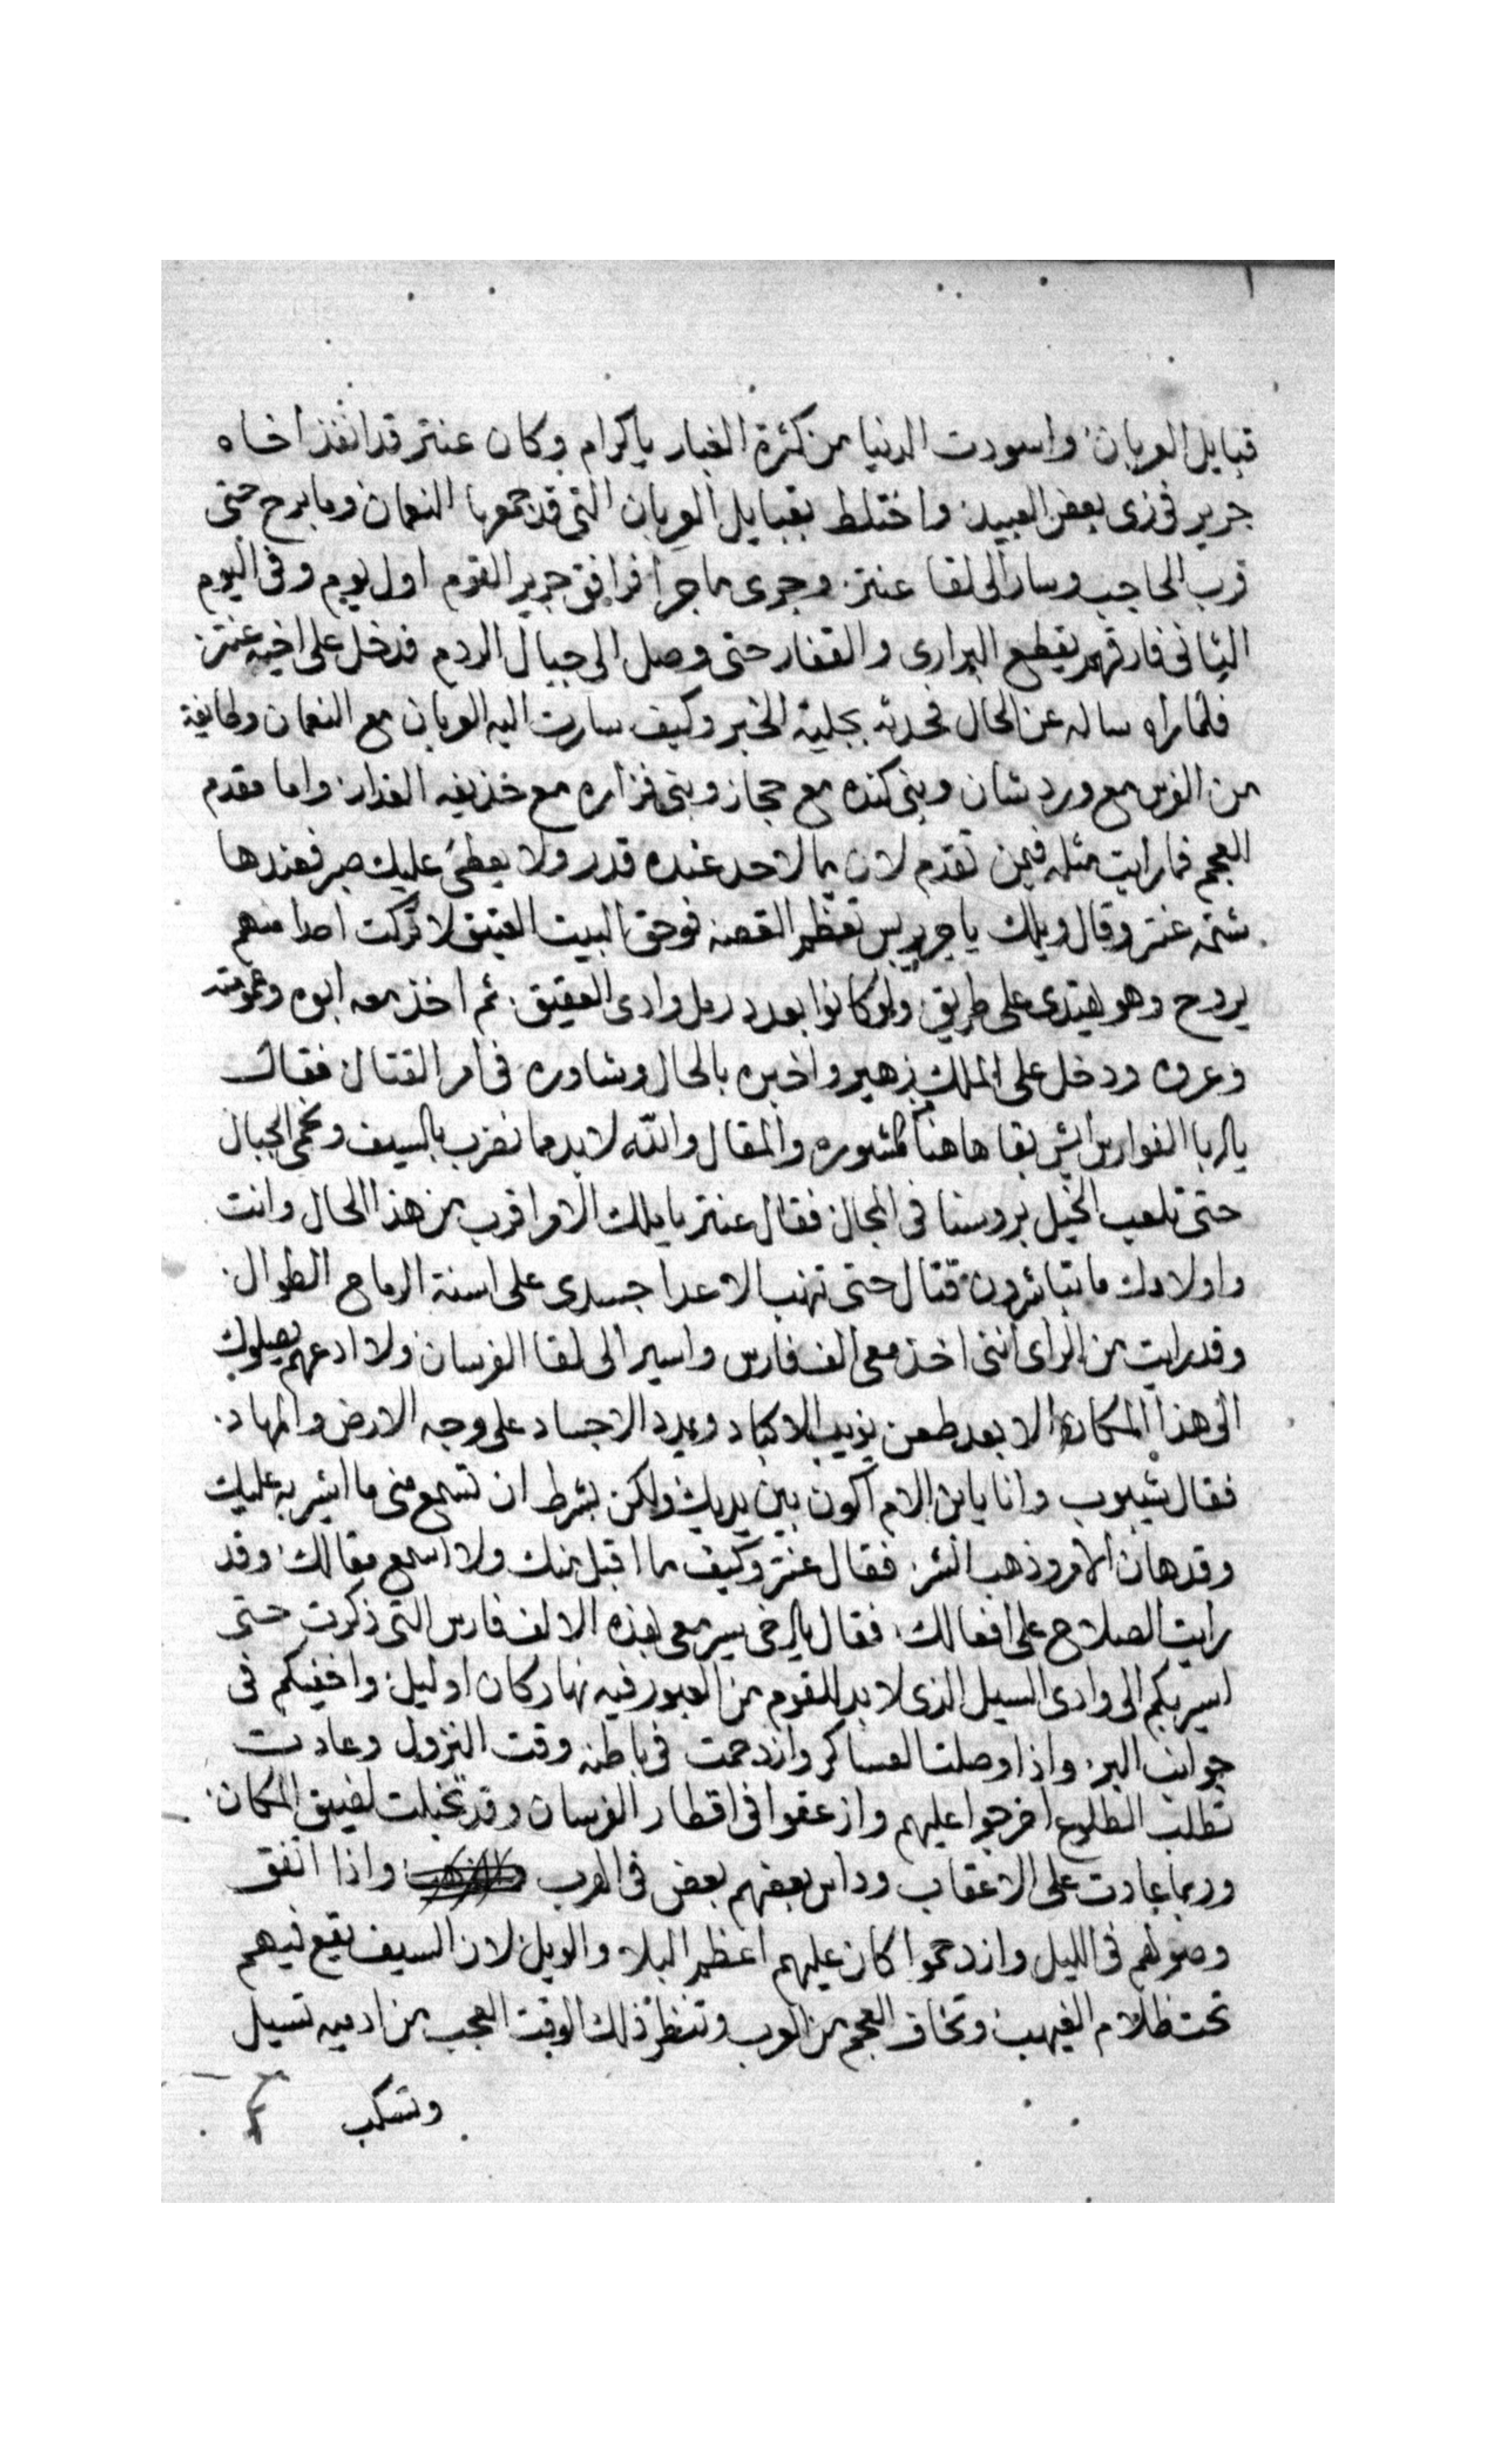 قبايل العربان واسودت الدنيا من كثرة الغبار ياكرام وكان عنتر قد انفذ اخاه
جرير فى زى بعض العبيد واختلط بقبايل العربان التى قد جمعها النعمان وما برح حتى
قرب الحاجب وسار الى لقا عنتر وجرى ما جرا فرافق جرير القوم اول يوم وفى اليوم
الثانى فارقهم يقطع البرارى والقفار حتى وصل الى جبال الردم فدخل على اخيه عنتر
فلما راه ساله عن الحال فحدثه بجلية الخبر وكيف سارت اليه العربان مع النعمان وطايفة
من الفرس مع وردشان وبنى كنده مع حجاز وبنى فزاره مع حذيفه الغدار واما مقدم
العجم فما رايت مثله فيمن تقدم لان ما لاحد عنده قدر ولا عليك صبر فعندها
شتمه عنتر وقال ويلك يا جرير بس تعظم القصه فوحق البيت العتيق لا تركت احدا منهم
يروح وهو يهتدى على طريق ولو كانوا بعدد رمل وادى العقيق ثم اخذ معه ابوه وعمومته
وعروه ودخل على الملك زهير واخبره بالحال وشاوره فى امر القتال فقال
يا ابا الفوارس ايش بقا هاهنا مشوره والمقال والله لا بد ما نضرب بالسيف ونحمى الجبال
حتى تلعب الخيل بروسنا فى المجال فقال عنتر يا ملك الامر اقرب من هذا الحال وانت
واولادك ما تباشرون قتال حتى تنهب الاعدا جسدى على اسنة الرماح الطوال
وقد رايت من الراى اننى اخذ معى الف فارس واسير الى لقا الفرسان ولا ادعهم يصلوك
الى هذا المكان الا بعد طعن يذيب الاكباد ويمدد الاجساد على وجه الارض والمهاد
فقال شيبوب وانا يا ابن الام اكون بين يديك ولكن بشرط ان تسمع منى ما اشير به عليك
وقد هان الامر وذهب الشر فقال عنتر وكيف ما اقبل منك ولا اسمع مقالك وقد
رايت الصلاح على افعالك فقال يا اخى سير معى بهذه الالف فارس التى ذكرت حتى
اسير بكم الى وادى السيل الذى لا بد للقوم من العبور فيه نهار كان او ليل واخفيكم فى
جوانب البر واذا وصلت العساكر وازدحمت فى باطنه وقت النزول وعادت
تطلب الطلوع اخرجوا عليهم وازعقوا فى اقطار الفرسان وقد تخبلت لضيق المكان
وربما عادت على الاعقاب وداس بعضهم بعض فى الهرب واذا اتفق
وصولهم فى الليل وازدحموا كان عليهم اعظم البلا والويل لان السيف يقع فيهم
تحت ظلام الغيهب وتخاف العجم من العرب وتنظر ذلك الوقت العجب من ادميه تسيل
وتسكب